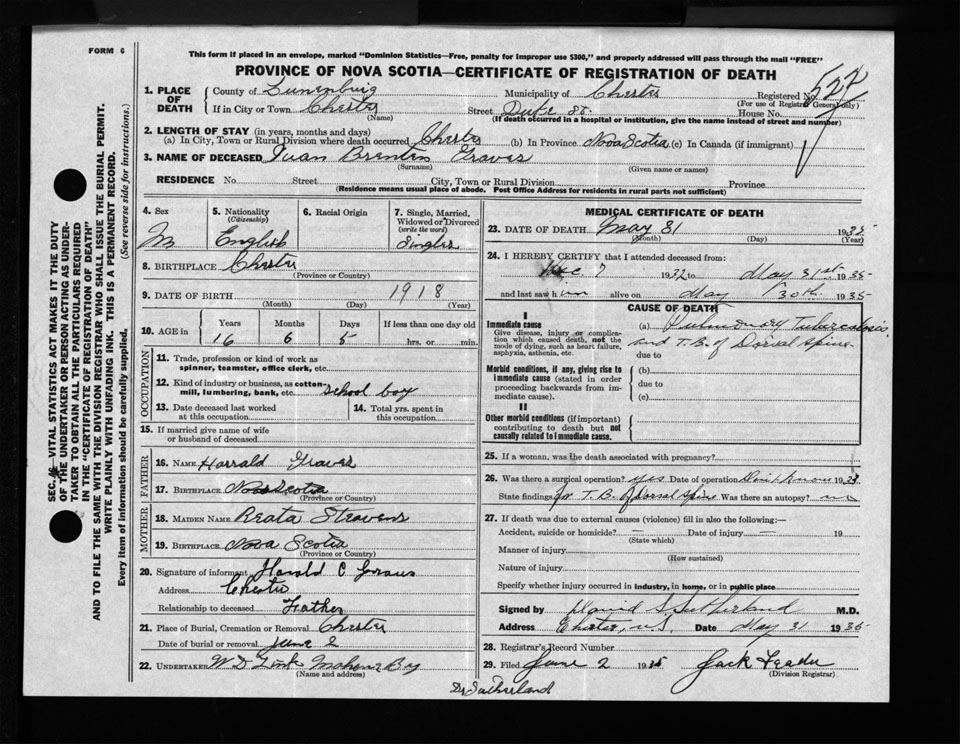 FORM 6
This form if placed in an envelope, marked "Dominion Statistics—Free, penalty for improper use $300," and properly addressed will pass through the mail "FREE"
PROVINCE OF NOVA SCOTIA—CERTIFICATE OF REGISTRATION OF DEATH
SEC. VITAL STATISTICS ACT MAKES IT THE DUTY
OF THE UNDERTAKER OR PERSON ACTING AS UNDER-
TAKER TO OBTAIN ALL THE PARTICULARS REQUIRED
IN THE "CERTIFICATE OF REGISTRATION OF DEATH"
AND TO FILE THE SAME WITH THE DIVISION REGISTRAR WHO SHALL ISSUE THE BURIAL PERMIT.
WRITE PLAINLY WITH UNFADING INK. THIS IS A PERMANENT RECORD.
Every item of information should be carefully supplied. (See reverse side for instructions.)
1. PLACE OF DEATH County of Lunenburg Municipality of Chester Registered No. 527
(For use of Registrar General only)
If in City or Town Chester Street Duke St. House No.
(Name) (If death occurred in a hospital or institution, give the name instead of street and number)
2. LENGTH OF STAY (in years, months and days)
(a) In City, Town or Rural Division where death occurred Chester (b) In Province Nova Scotia (c) In Canada (if immigrant)
3. NAME OF DECEASED Graves
(Surname) (Given name or names)
RESIDENCE No. Street City, Town or Rural Division Province
(Residence means usual place of abode. Post Office Address for residents in rural parts not sufficient)
4. Sex M
5. Nationality (Citizenship) English
6. Racial Origin
7. Single, Married, Widowed or Divorced (write the word) Single
8. BIRTHPLACE Chester
(Province or Country)
9. DATE OF BIRTH 1918
(Month) (Day) (Year)
10. AGE in Years Months Days If less than one day old
16 6 5 hrs. or min.
OCCUPATION
11. Trade, profession or kind of work as spinner, teamster, office clerk, etc.
12. Kind of industry or business, as cotton-mill, lumbering, bank, etc. School boy
13. Date deceased last worked at this occupation
14. Total yrs. spent in this occupation
15. If married give name of wife or husband of deceased
FATHER
16. NAME Harrald Graves
17. BIRTHPLACE Nova Scotia
(Province or Country)
MOTHER
18. MAIDEN NAME Reata Steavens
19. BIRTHPLACE Nova Scotia
(Province or Country)
20. Signature of informant Harald C Graves
Address Chester
Relationship to deceased Father
21. Place of Burial, Cremation or Removal Chester
Date of burial or removal June 2
22. UNDERTAKER W D Zink Mahone Bay
(Name and address)
MEDICAL CERTIFICATE OF DEATH
23. DATE OF DEATH May 31 1935
(Month) (Day) (Year)
24. I HEREBY CERTIFY that I attended deceased from:
Dec 7 1932 to May 31st 1935
and last saw him alive on May 30th 1935
CAUSE OF DEATH
I
Immediate cause
Give disease, injury or complication which caused death, not the mode of dying, such as heart failure, asphyxia, asthenia, etc.
(a) Pulmonary Tuberculosis
and T.B. of Dorsal Spine
due to
Morbid conditions, if any, giving rise to immediate cause (stated in order proceeding backwards from immediate cause).
(b)
due to
(c)
II
Other morbid conditions (if important) contributing to death but not causally related to immediate cause.
25. If a woman, was the death associated with pregnancy?
26. Was there a surgical operation? yes Date of operation Don't know 19
State findings for T.B. of Dorsal Spine Was there an autopsy? no
27. If death was due to external causes (violence) fill in also the following:—
Accident, suicide or homicide? — Date of injury — 19
(State which)
Manner of injury
(How sustained)
Nature of injury
Specify whether injury occurred in industry, in home, or in public place
Signed by David S Sutherland M.D.
Address Chester, N.S. Date May 31 1935
28. Registrar's Record Number
29. Filed June 2 1935
(Division Registrar)
Dr Sutherland